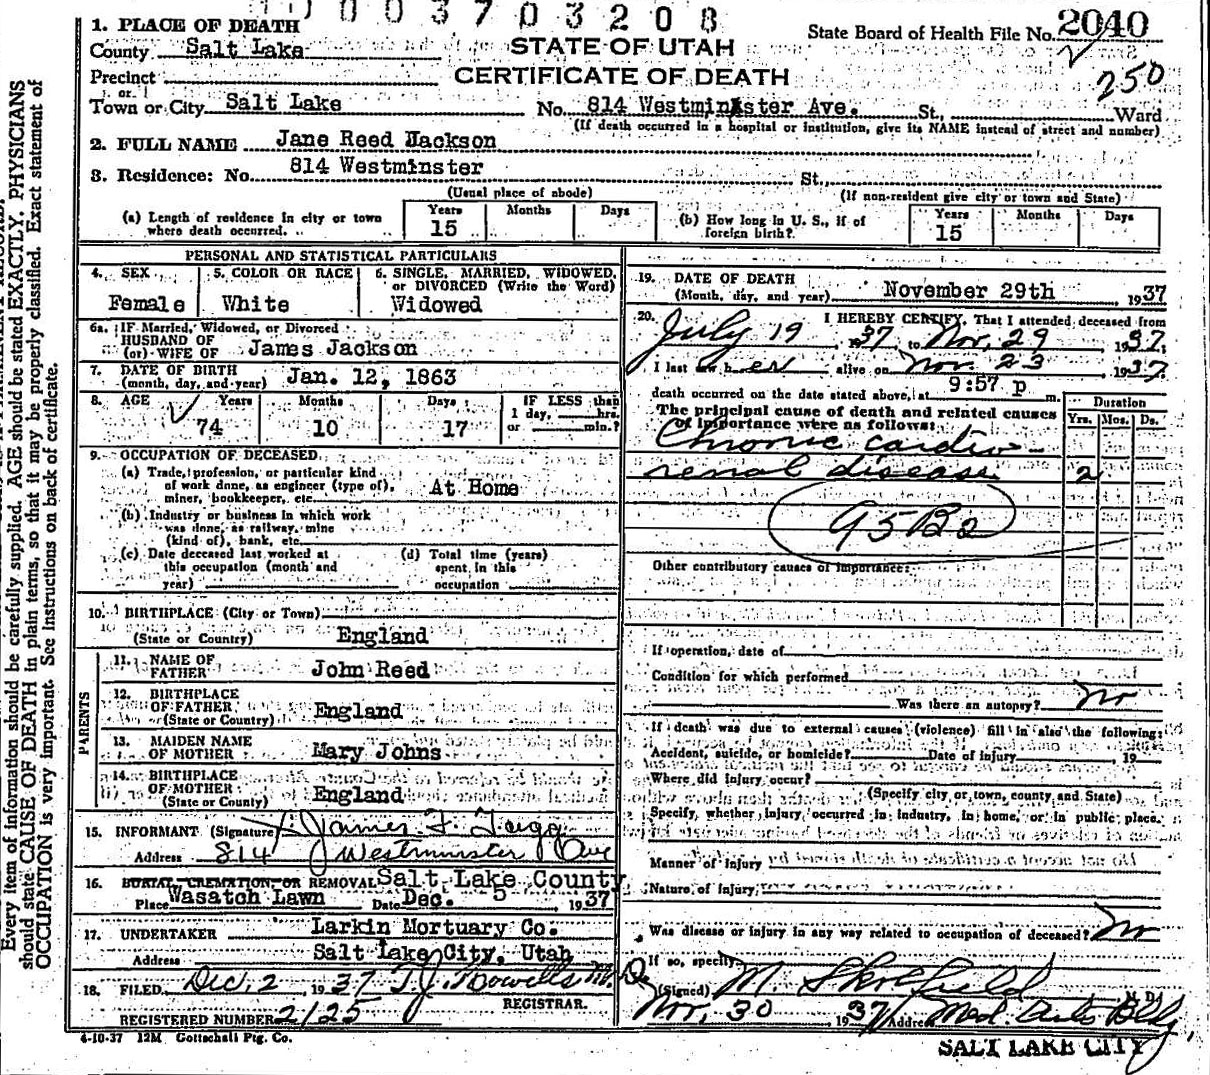 1003703208
1. PLACE OF DEATH
State Board of Health File No. 2040
County Salt Lake
STATE OF UTAH
Precinct
CERTIFICATE OF DEATH
250
or
Town or City Salt Lake No. 814 Westminster Ave. St., Ward
(If death occurred in a hospital or institution, give its NAME instead of street and number)
2. FULL NAME Jane Reed Jackson
3. Residence: No. 814 Westminster St.,
(Usual place of abode) (If non-resident give city or town and State)
(a) Length of residence in city or town where death occurred. Years 15 Months Days
(b) How long in U. S., if of foreign birth? Years 15 Months Days
PERSONAL AND STATISTICAL PARTICULARS
4. SEX 5. COLOR OR RACE 6. SINGLE, MARRIED, WIDOWED,
or DIVORCED (Write the Word)
Female White Widowed
6a. IF Married, Widowed, or Divorced
HUSBAND OF
(or) WIFE OF James Jackson
7. DATE OF BIRTH
(month, day, and year) Jan. 12, 1863
8. AGE Years Months Days IF LESS than
1 day, hrs.
74 10 17 or min.?
9. OCCUPATION OF DECEASED
(a) Trade, profession, or particular kind
of work done, as engineer (type of),
miner, bookkeeper, etc. At Home
(b) Industry or business in which work
was done, as railway, mine
(kind of), bank, etc.
(c) Date deceased last worked at
this occupation (month and
year)
(d) Total time (years)
spent in this
occupation
10. BIRTHPLACE (City or Town)
(State or Country) England
PARENTS
11. NAME OF
FATHER John Reed
12. BIRTHPLACE
OF FATHER
(State or Country) England
13. MAIDEN NAME
OF MOTHER Mary Johns
14. BIRTHPLACE
OF MOTHER
(State or Country) England
15. INFORMANT (Signature) James F. Tagg
Address 814 Westminster Ave
16. BURIAL CREMATION OR REMOVAL Salt Lake County
Place Wasatch Lawn Date Dec. 5 1937
17. UNDERTAKER Larkin Mortuary Co.
Address Salt Lake City, Utah
18. FILED Dec. 2 1937 T.J. Howells M.D.
REGISTRAR.
REGISTERED NUMBER 2125
4-10-37 12M Gottschall Ptg. Co.
19. DATE OF DEATH
(Month, day, and year) November 29th 1937
20. I HEREBY CERTIFY, That I attended deceased from
July 19 1937, to Nov. 29 1937.
I last saw her alive on Nov. 23 1937.
9:57 p
death occurred on the date stated above, at m.
The principal cause of death and related causes
of importance were as follows:
Duration
Yrs. Mos. Ds.
Chronic cardio
renal disease 2
95B2
Other contributory causes of importance:
If operation, date of
Condition for which performed
Was there an autopsy? no
If death was due to external causes (violence) fill in also the following:
Accident, suicide, or homicide? Date of injury 19
Where did injury occur?
(Specify city or town, county and State)
Specify, whether injury occurred in industry, in home, or in public place.
Manner of injury
Nature of injury
Was disease or injury in any way related to occupation of deceased? no
If so, specify
(Signed) M. Skolfield M. D.
Nov. 30 1937 Address Med. Arts Bldg,
SALT LAKE CITY
Every item of information should be carefully supplied. AGE should be stated EXACTLY. PHYSICIANS
should state CAUSE OF DEATH in plain terms, so that it may be properly classified. Exact statement of
OCCUPATION is very important. See instructions on back of certificate.